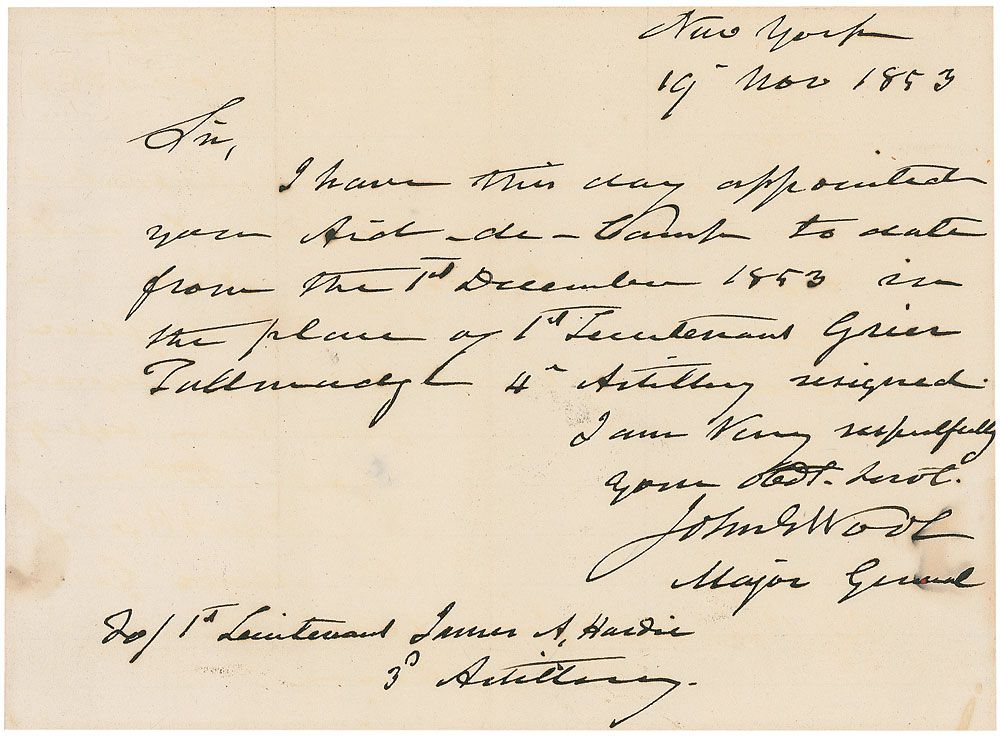 New York
19" Nov 1853
Sir,
I have this day appointed
you Aid-de-Camp to date
from the 1st December 1853 in
the place of 1st Lieutenant Grier
Tallmadge 4" Artillery resigned.
I am Very respectfully
Your Obt. Servt.
John E Wool
Major General
To/ 1st Lieutenant James A. Hardie
3d Artillery.